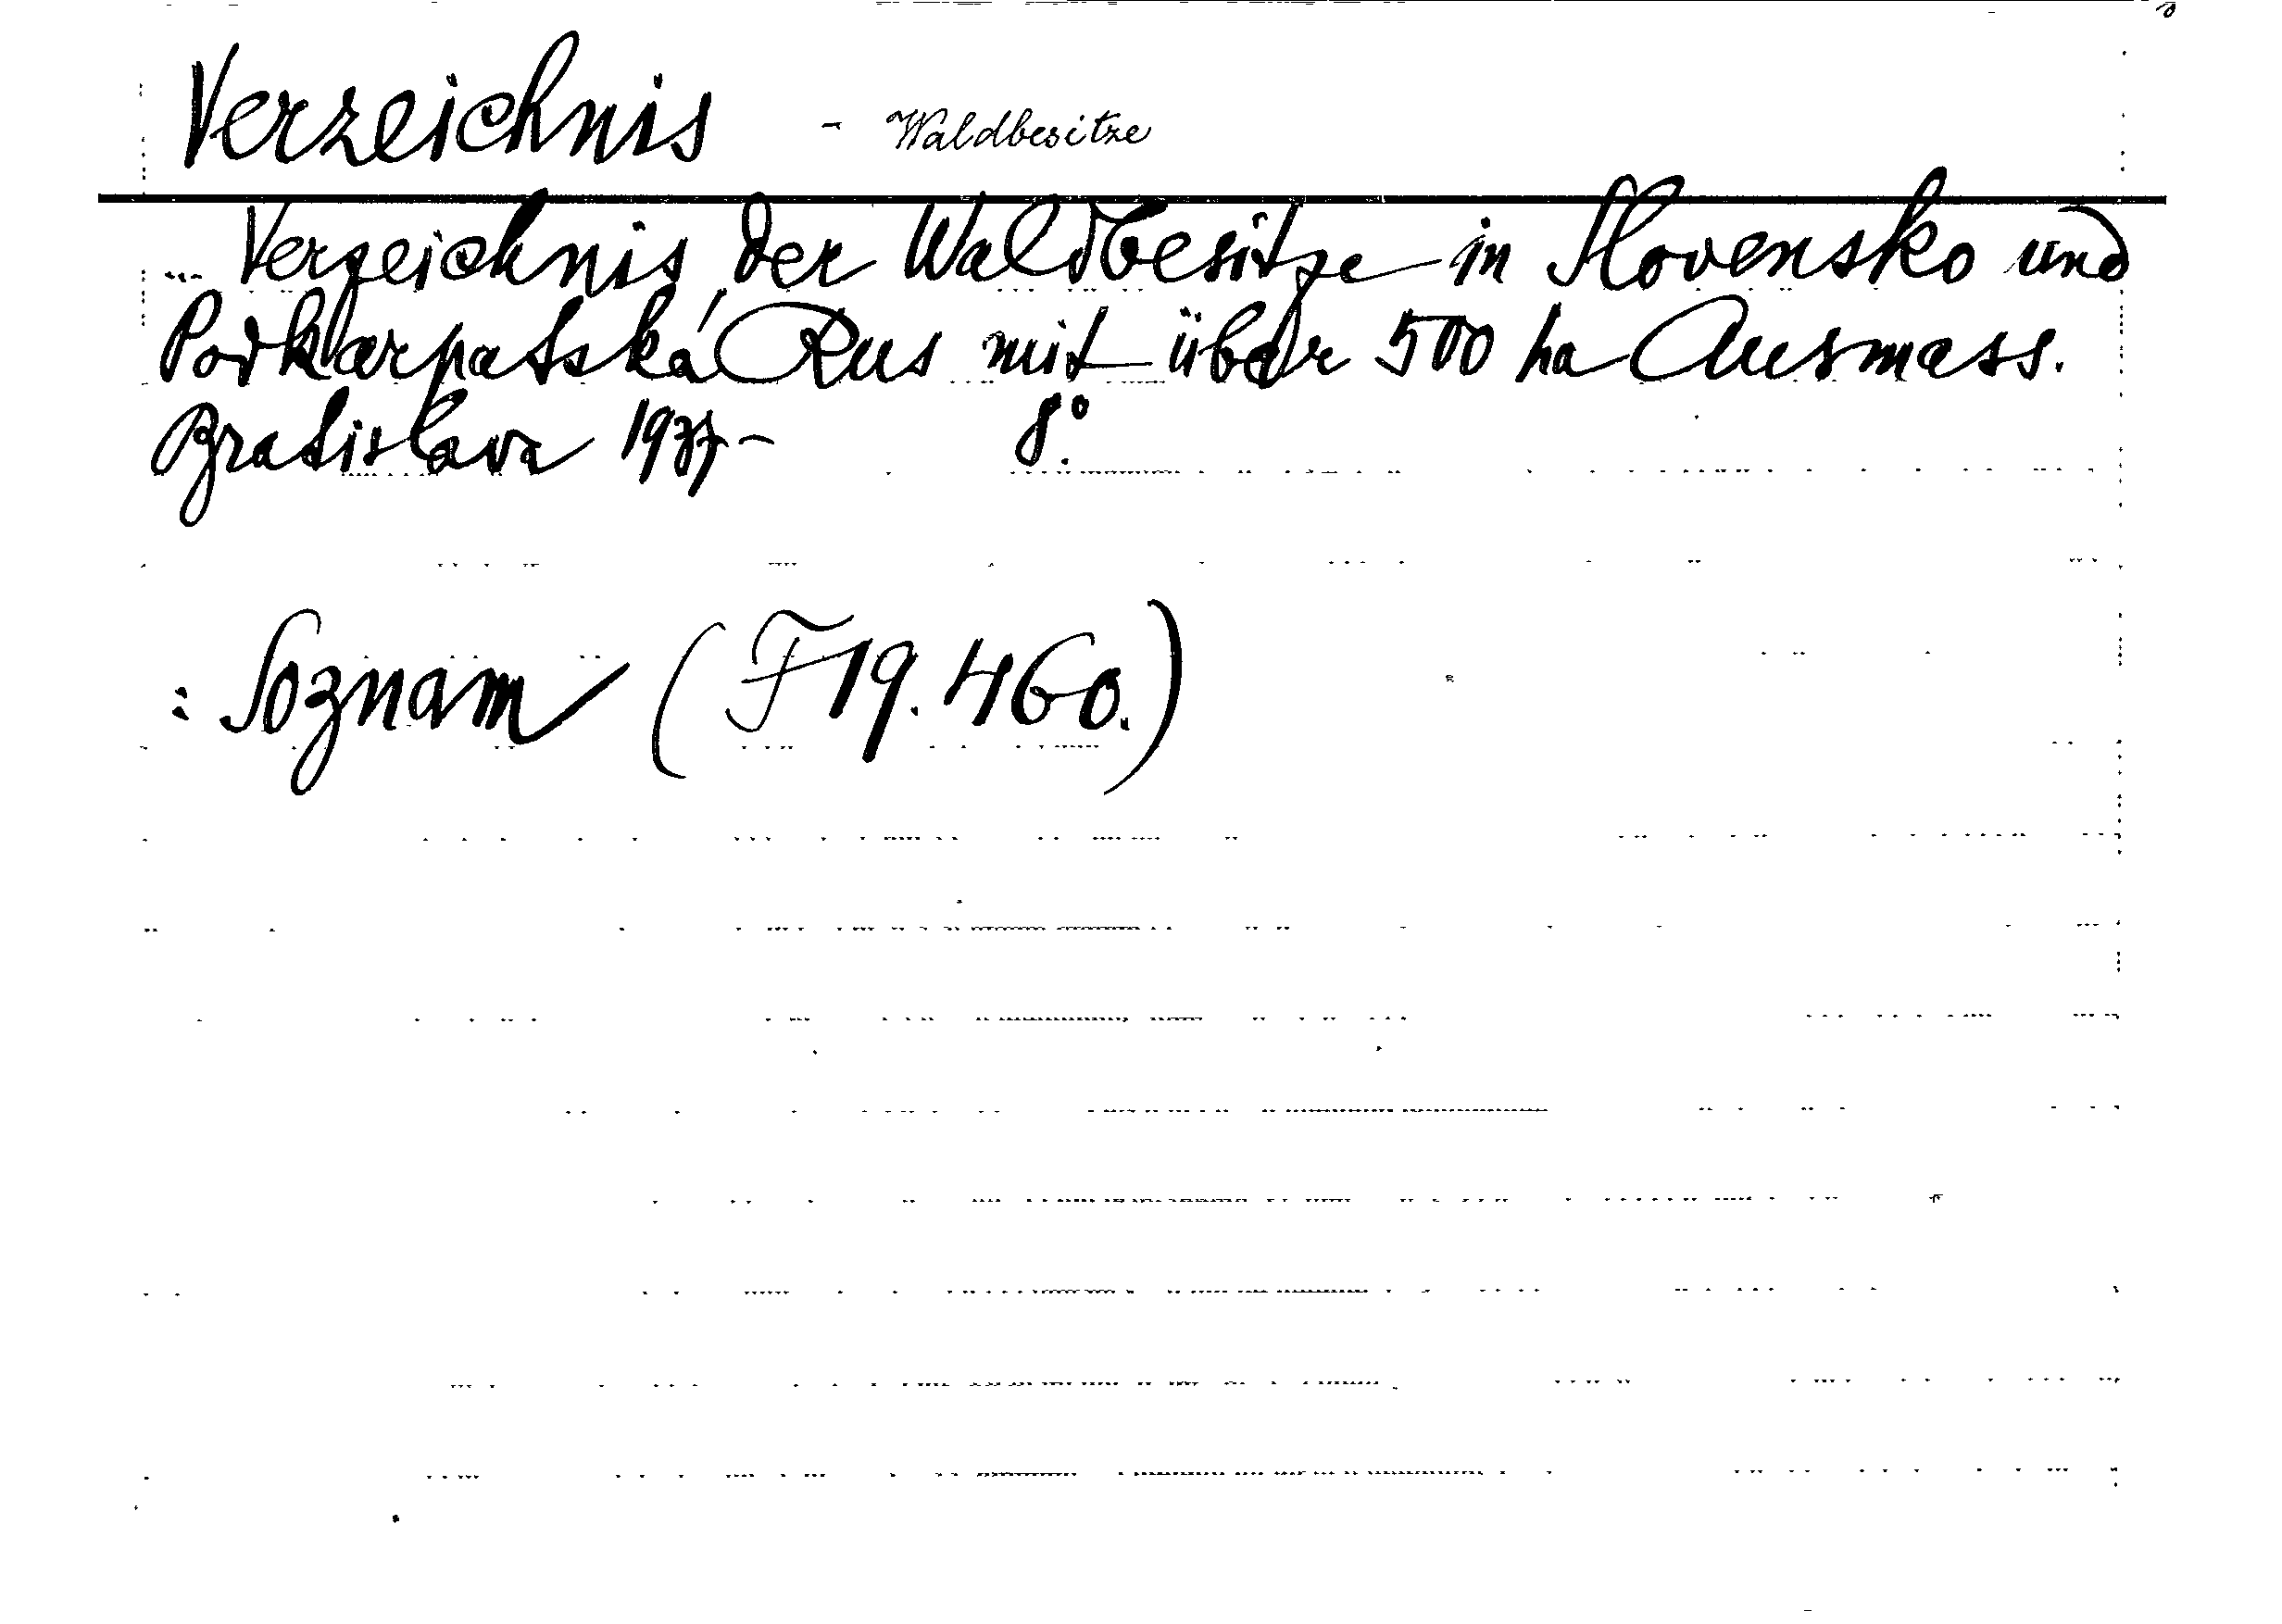 Verzeichnis - Waldbesitze
... Verzeichnis der Waldbesitze in Slovensko und
Podkarpatská Rus mit über 500 ha Ausmass.
Bratislava 8°.
: Soznam (F 19.460.)